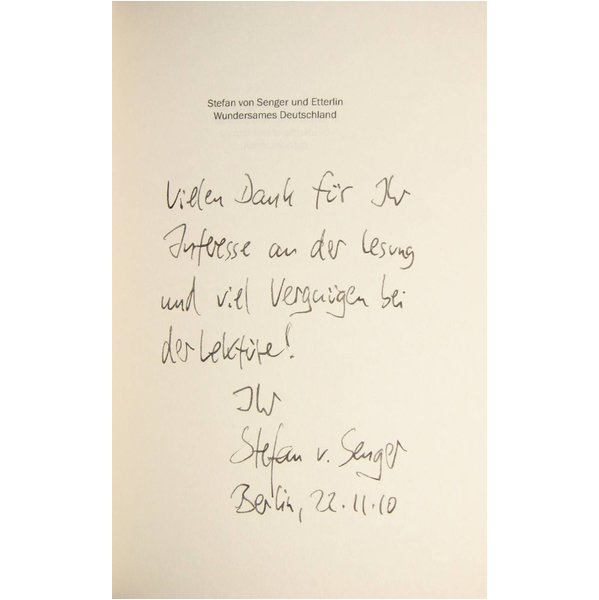 Stefan von Senger und Etterlin
Wundersames Deutschland
Vielen Dank für Ihr
Interesse an der Lesung
und viel Vergnügen bei
der Lektüre!
Ihr
Stefan v. Senger
Berlin, 22.11.10